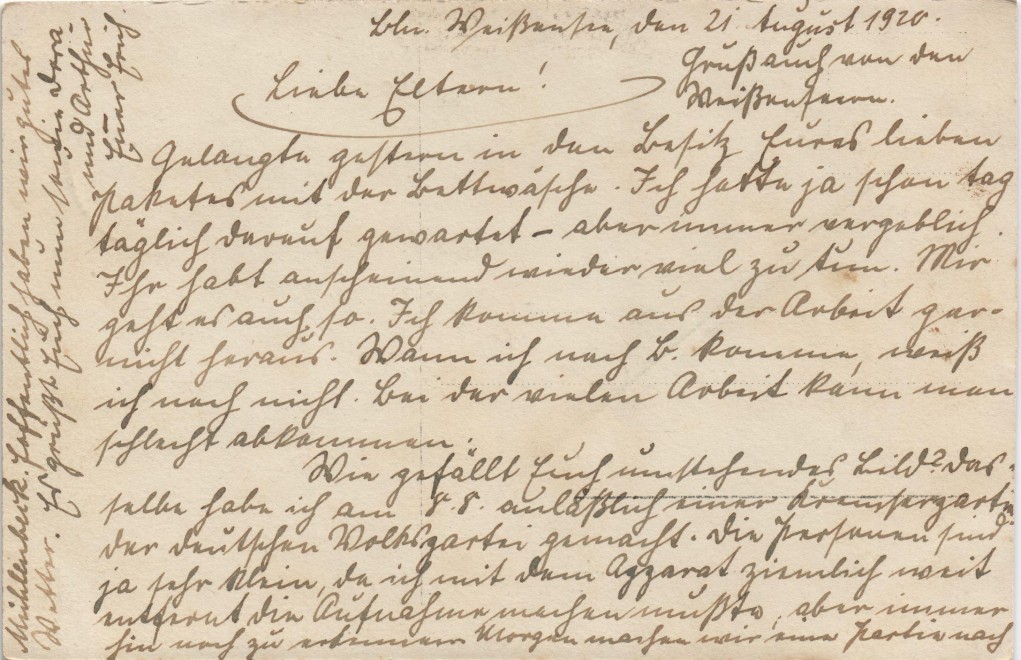 Bln. Weißensee, den 21. August 1920.
Gruß auch von den
Weißenseern.
Liebe Eltern!
Gelangte gestern in den Besitz Eures lieben
Paketes mit der Bettwäsche. Ich hatte ja schon tag
täglich darauf gewartet – aber immer vergeblich.
Ihr habt anscheinend wieder viel zu tun. Mir
geht es auch so. Ich komme aus der Arbeit gar-
nicht heraus. Wann ich nach B. komme, weiß
ich noch nicht. Bei der vielen Arbeit kann man
schlecht abkommen.
Wie gefällt Euch umstehendes Bild? Das-
selbe habe ich am 8.8. anläßlich einer Kremserpartie
der Deutschen Volkspartei gemacht. Die Personen sind
ja sehr klein, da ich mit dem Apparat ziemlich weit
entfernt die Aufnahme machen mußte, aber immer
hin noch zu erkennen. Morgen machen wir eine Partie nach
Mühlenbeck. Hoffentlich haben wir gutes
Wetter. Es grüßt Euch nun sowie Dora
und Arthur
Euer Erich.